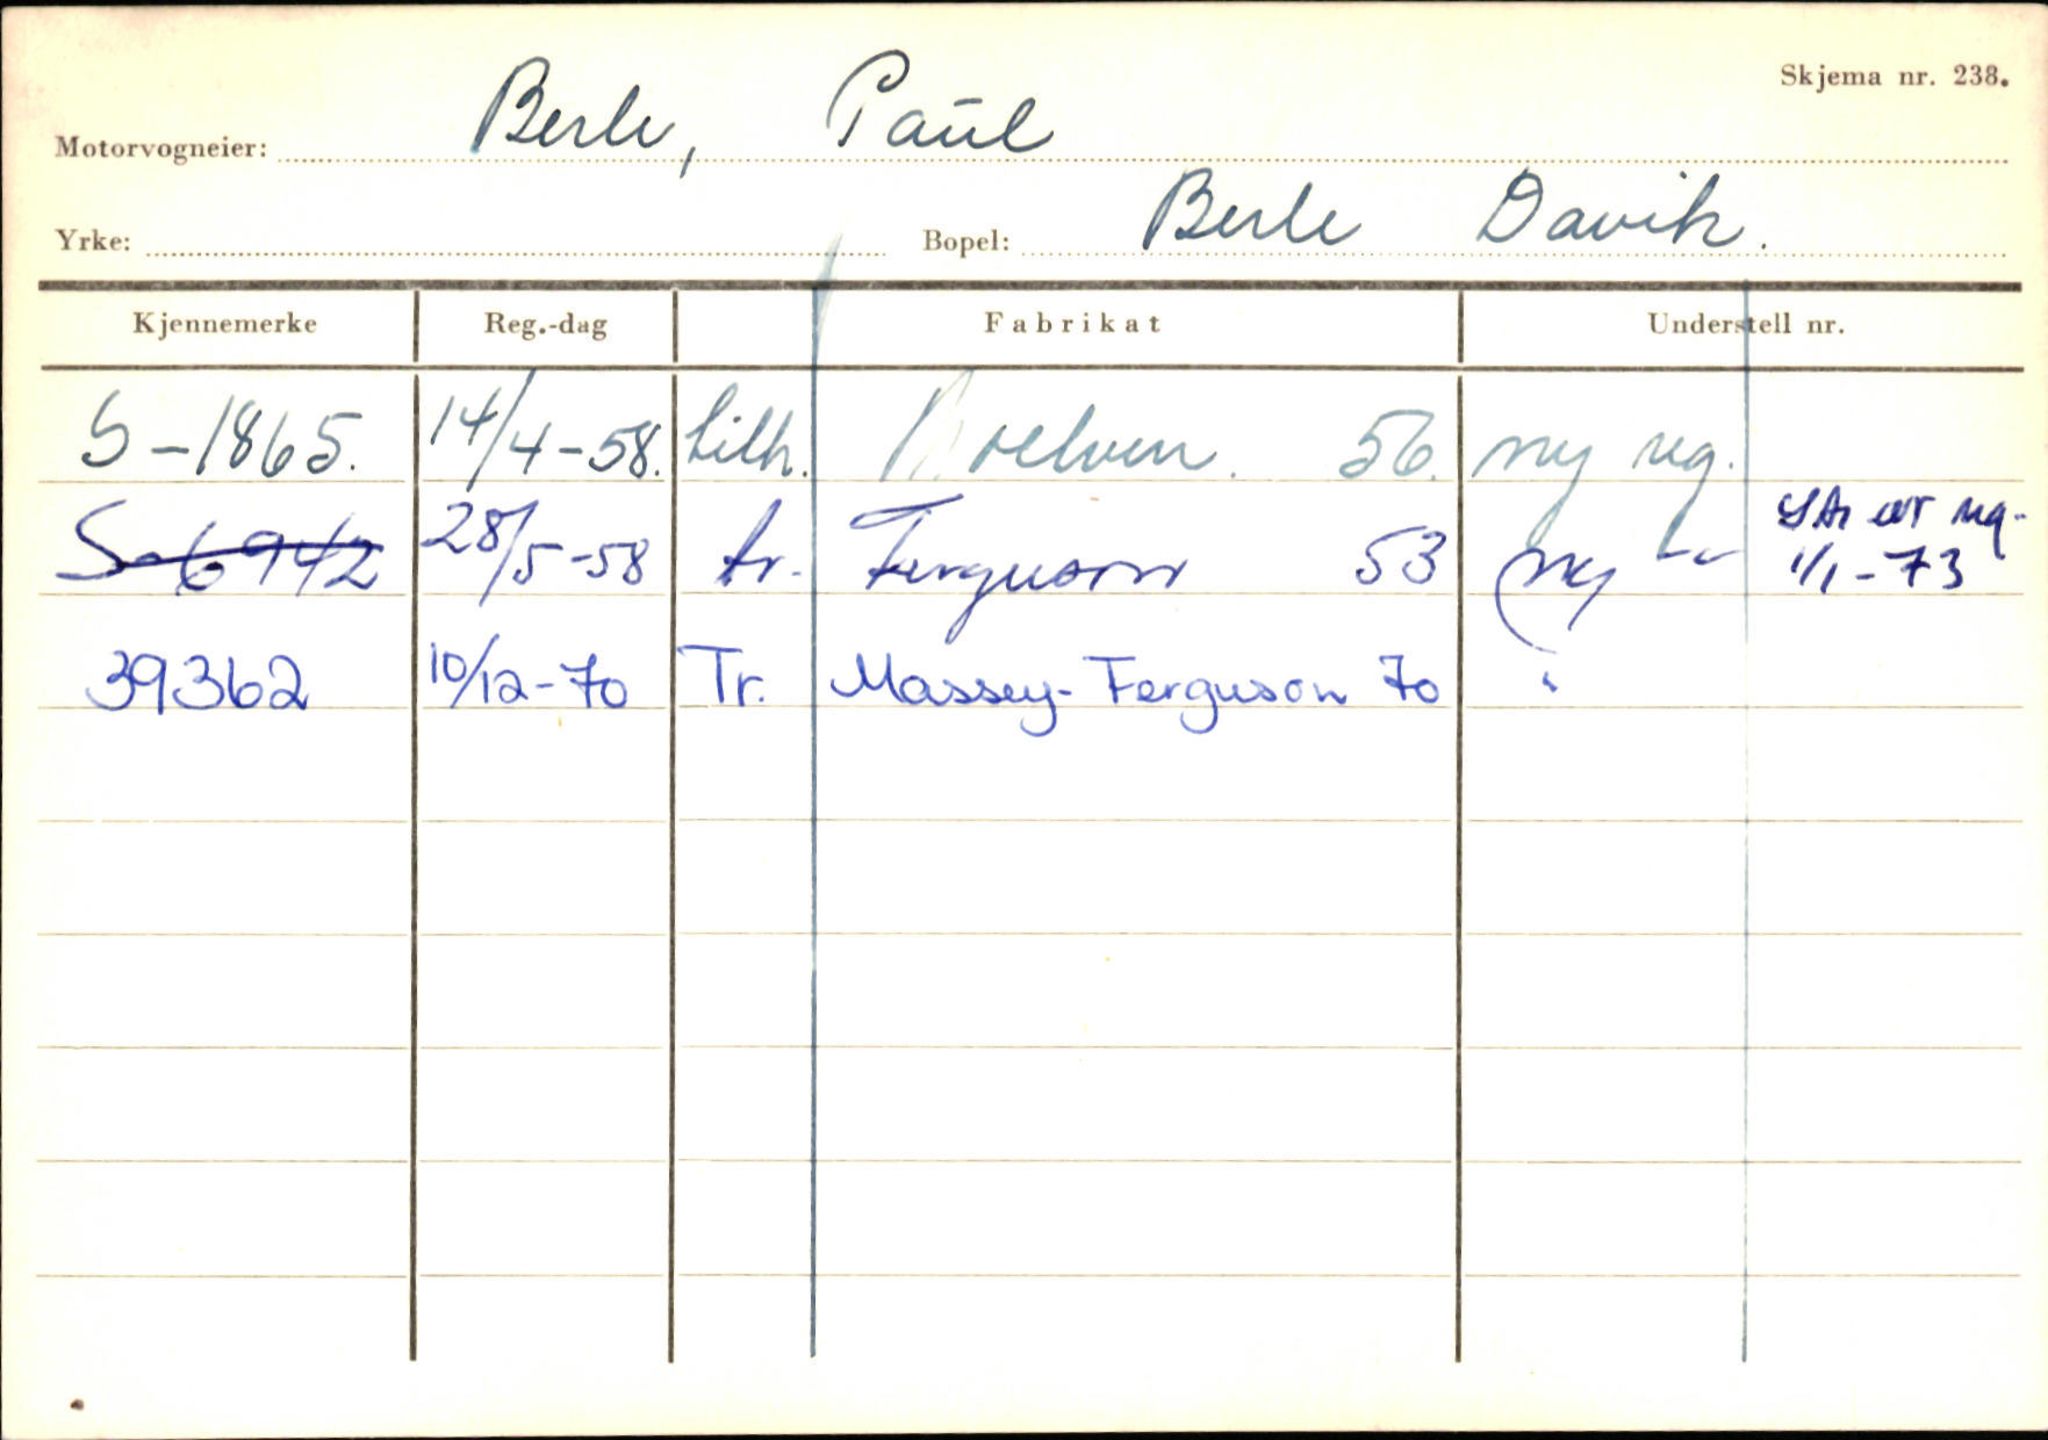 Skjema nr. 238.
Motorvogneier: Berle, Paul
Yrke: Bopel: Berle Davik.
Kjennemerke Reg.-dag Fabrikat Understell nr.
S-1865. 14/4-58. tilh. Moelven. 56. ny reg.
S-6942 28/5-58 tr. Ferguson 53 ny reg.
1/1-73
39362 10/12-70 Tr. Massey-Ferguson 70